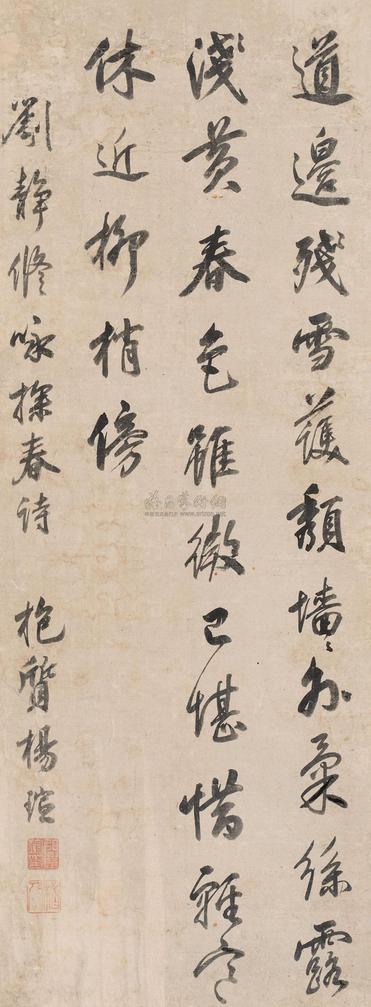 道邊殘雪護頹墻墻外柔絲露
淺黃春色雖微已堪惜輕寒
休近柳梢傍
劉靜修咏探春诗 抱質楊瑄